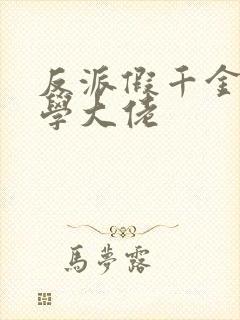 反派假千金
學大佬
馬夢露